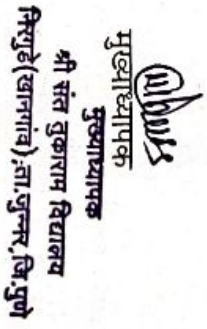 मुख्याध्यापक
मुख्याध्यापक
श्री संत तुकाराम विद्यालय
निरगुडे(खानगांव);ता.जुन्नर,जि.पुणे